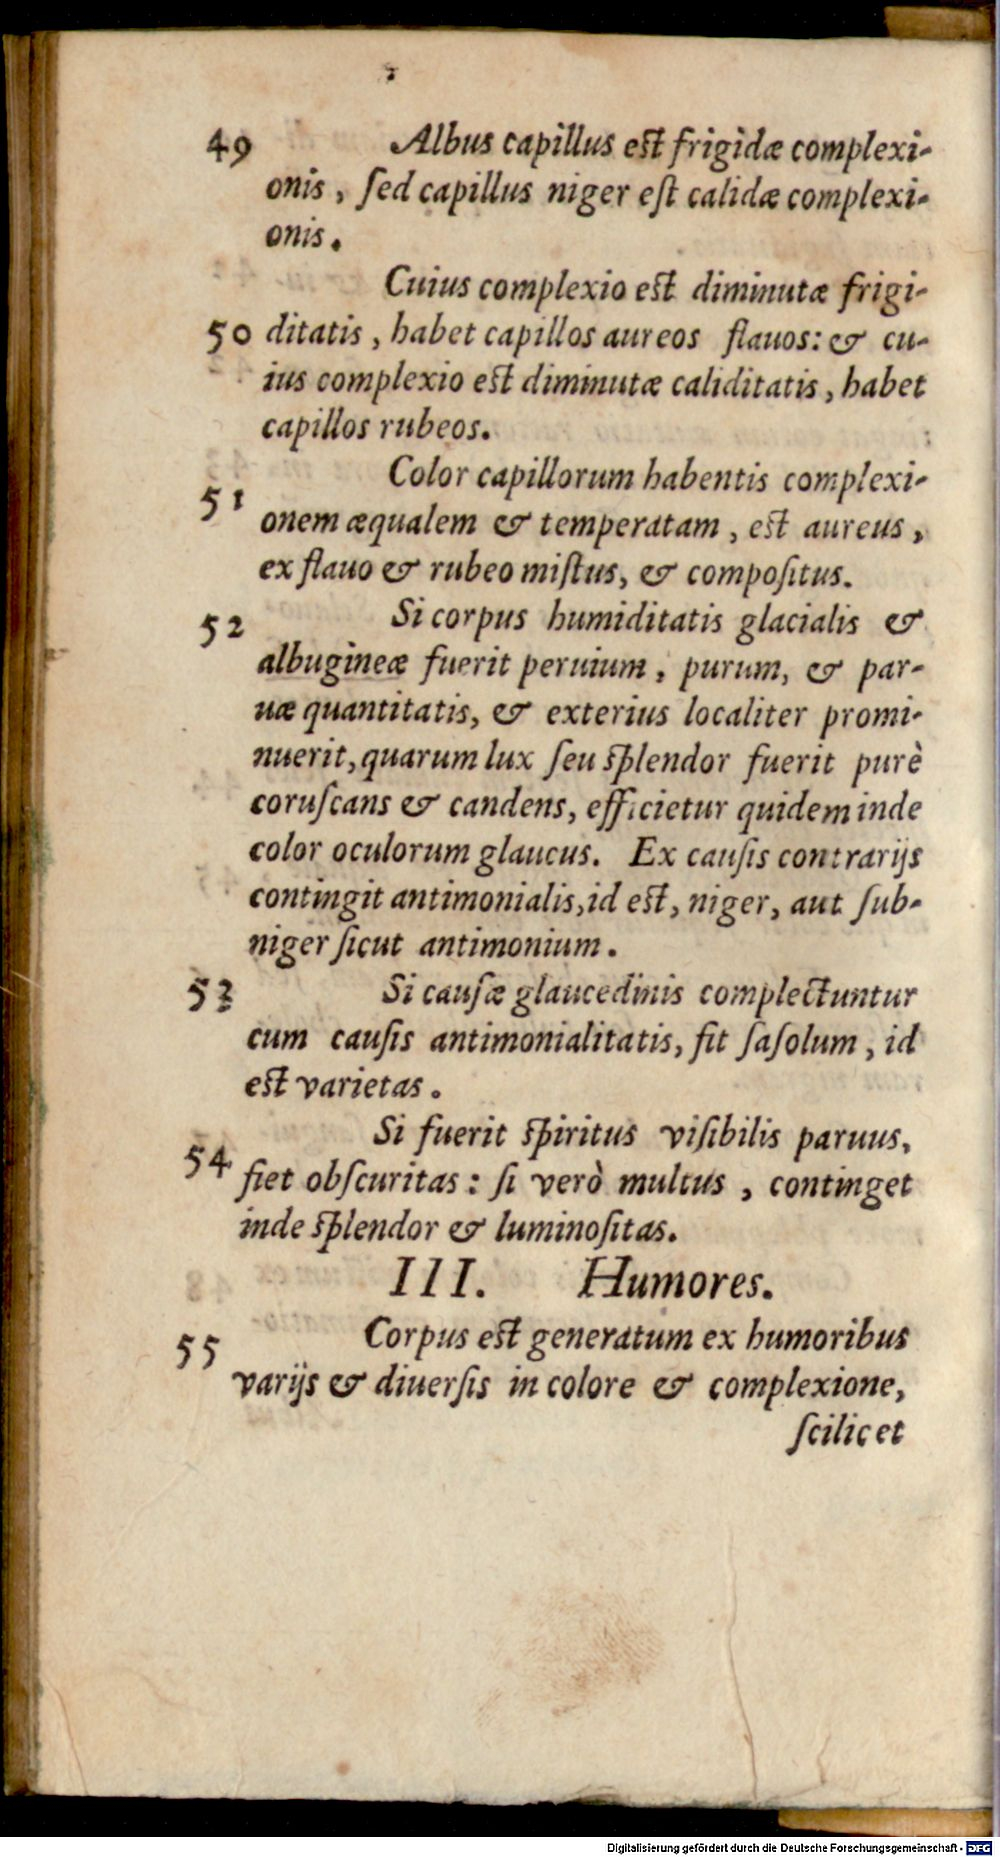 49 Albus capillus est frigidæ complexi-
onis, ſed capillus niger eſt calidæ complexi-
onis.
Cuius complexio est diminutæ frigi-
50 ditatis, habet capillos aureos flauos: & cu-
ius complexio est diminutæ caliditatis, habet
capillos rubeos.
Color capillorum habentis complexi-
51 onem æqualem & temperatam, est aureus,
ex flauo & rubeo miſtus, & compoſitus.
52 Si corpus humiditatis glacialis &
albugineæ fuerit peruium, purum, & par-
uæ quantitatis, & exterius localiter promi-
nuerit, quarum lux ſeu ſplendor fuerit purè
coruſcans & candens, efficietur quidem inde
color oculorum glaucus. Ex cauſis contrarijs
contingit antimonialis, id est, niger, aut ſub-
niger ſicut antimonium.
53 Si cauſæ glaucedinis complectuntur
cum cauſis antimonialitatis, fit ſaſolum, id
est varietas.
Si fuerit ſpiritus viſibilis paruus,
54 fiet obſcuritas: ſi verò multus, continget
inde ſplendor & luminoſitas.
III. Humores.
55 Corpus est generatum ex humoribus
varijs & diuerſis in colore & complexione,
ſcilicet
Digitalisierung gefördert durch die Deutsche Forschungsgemeinschaft - DFG